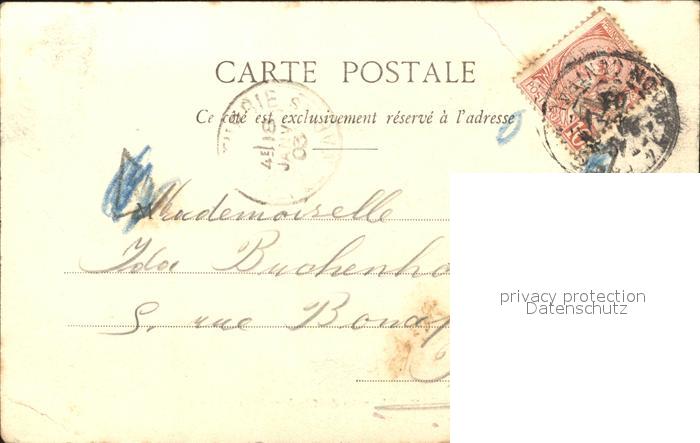 CARTE POSTALE
Ce côté est exclusivement réservé à l'adresse
4E 18
JANV
03
Mademoiselle
Ida Buchenho
5. rue Bonap
privacy protection
Datenschutz